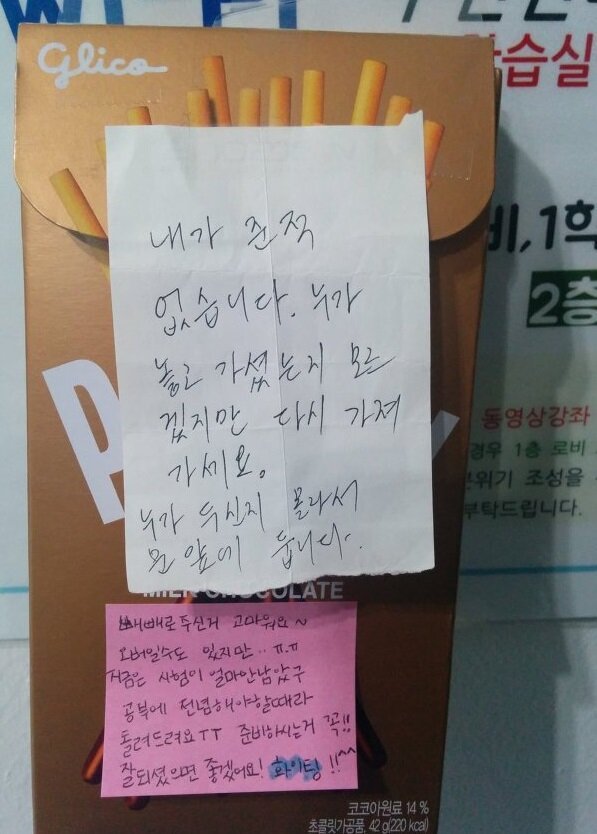 Wi-Fi
Glico
학습실
비, 1학
2층
동영상강좌
경우 1층 로비
분위기 조성을
부탁드립니다.
내가 준적
없습니다. 누가
놓고 가셨는지 모르
겠지만 다시 가져
가세요.
누가 두신지 몰라서
문 앞에 둡니다.
P
MILK CHOCOLATE
빼빼로 주신거 고마워요~
오버일수도 있지만.. ㅠ.ㅠ
지금은 시험이 얼마안남았구
공부에 전념해야할때라
돌려드려요TT 준비하시는거 꼭!!
잘되셨으면 좋겠어요! 화이팅!! ^^
코코아원료 14 %
초콜릿가공품, 42 g(220 kcal)